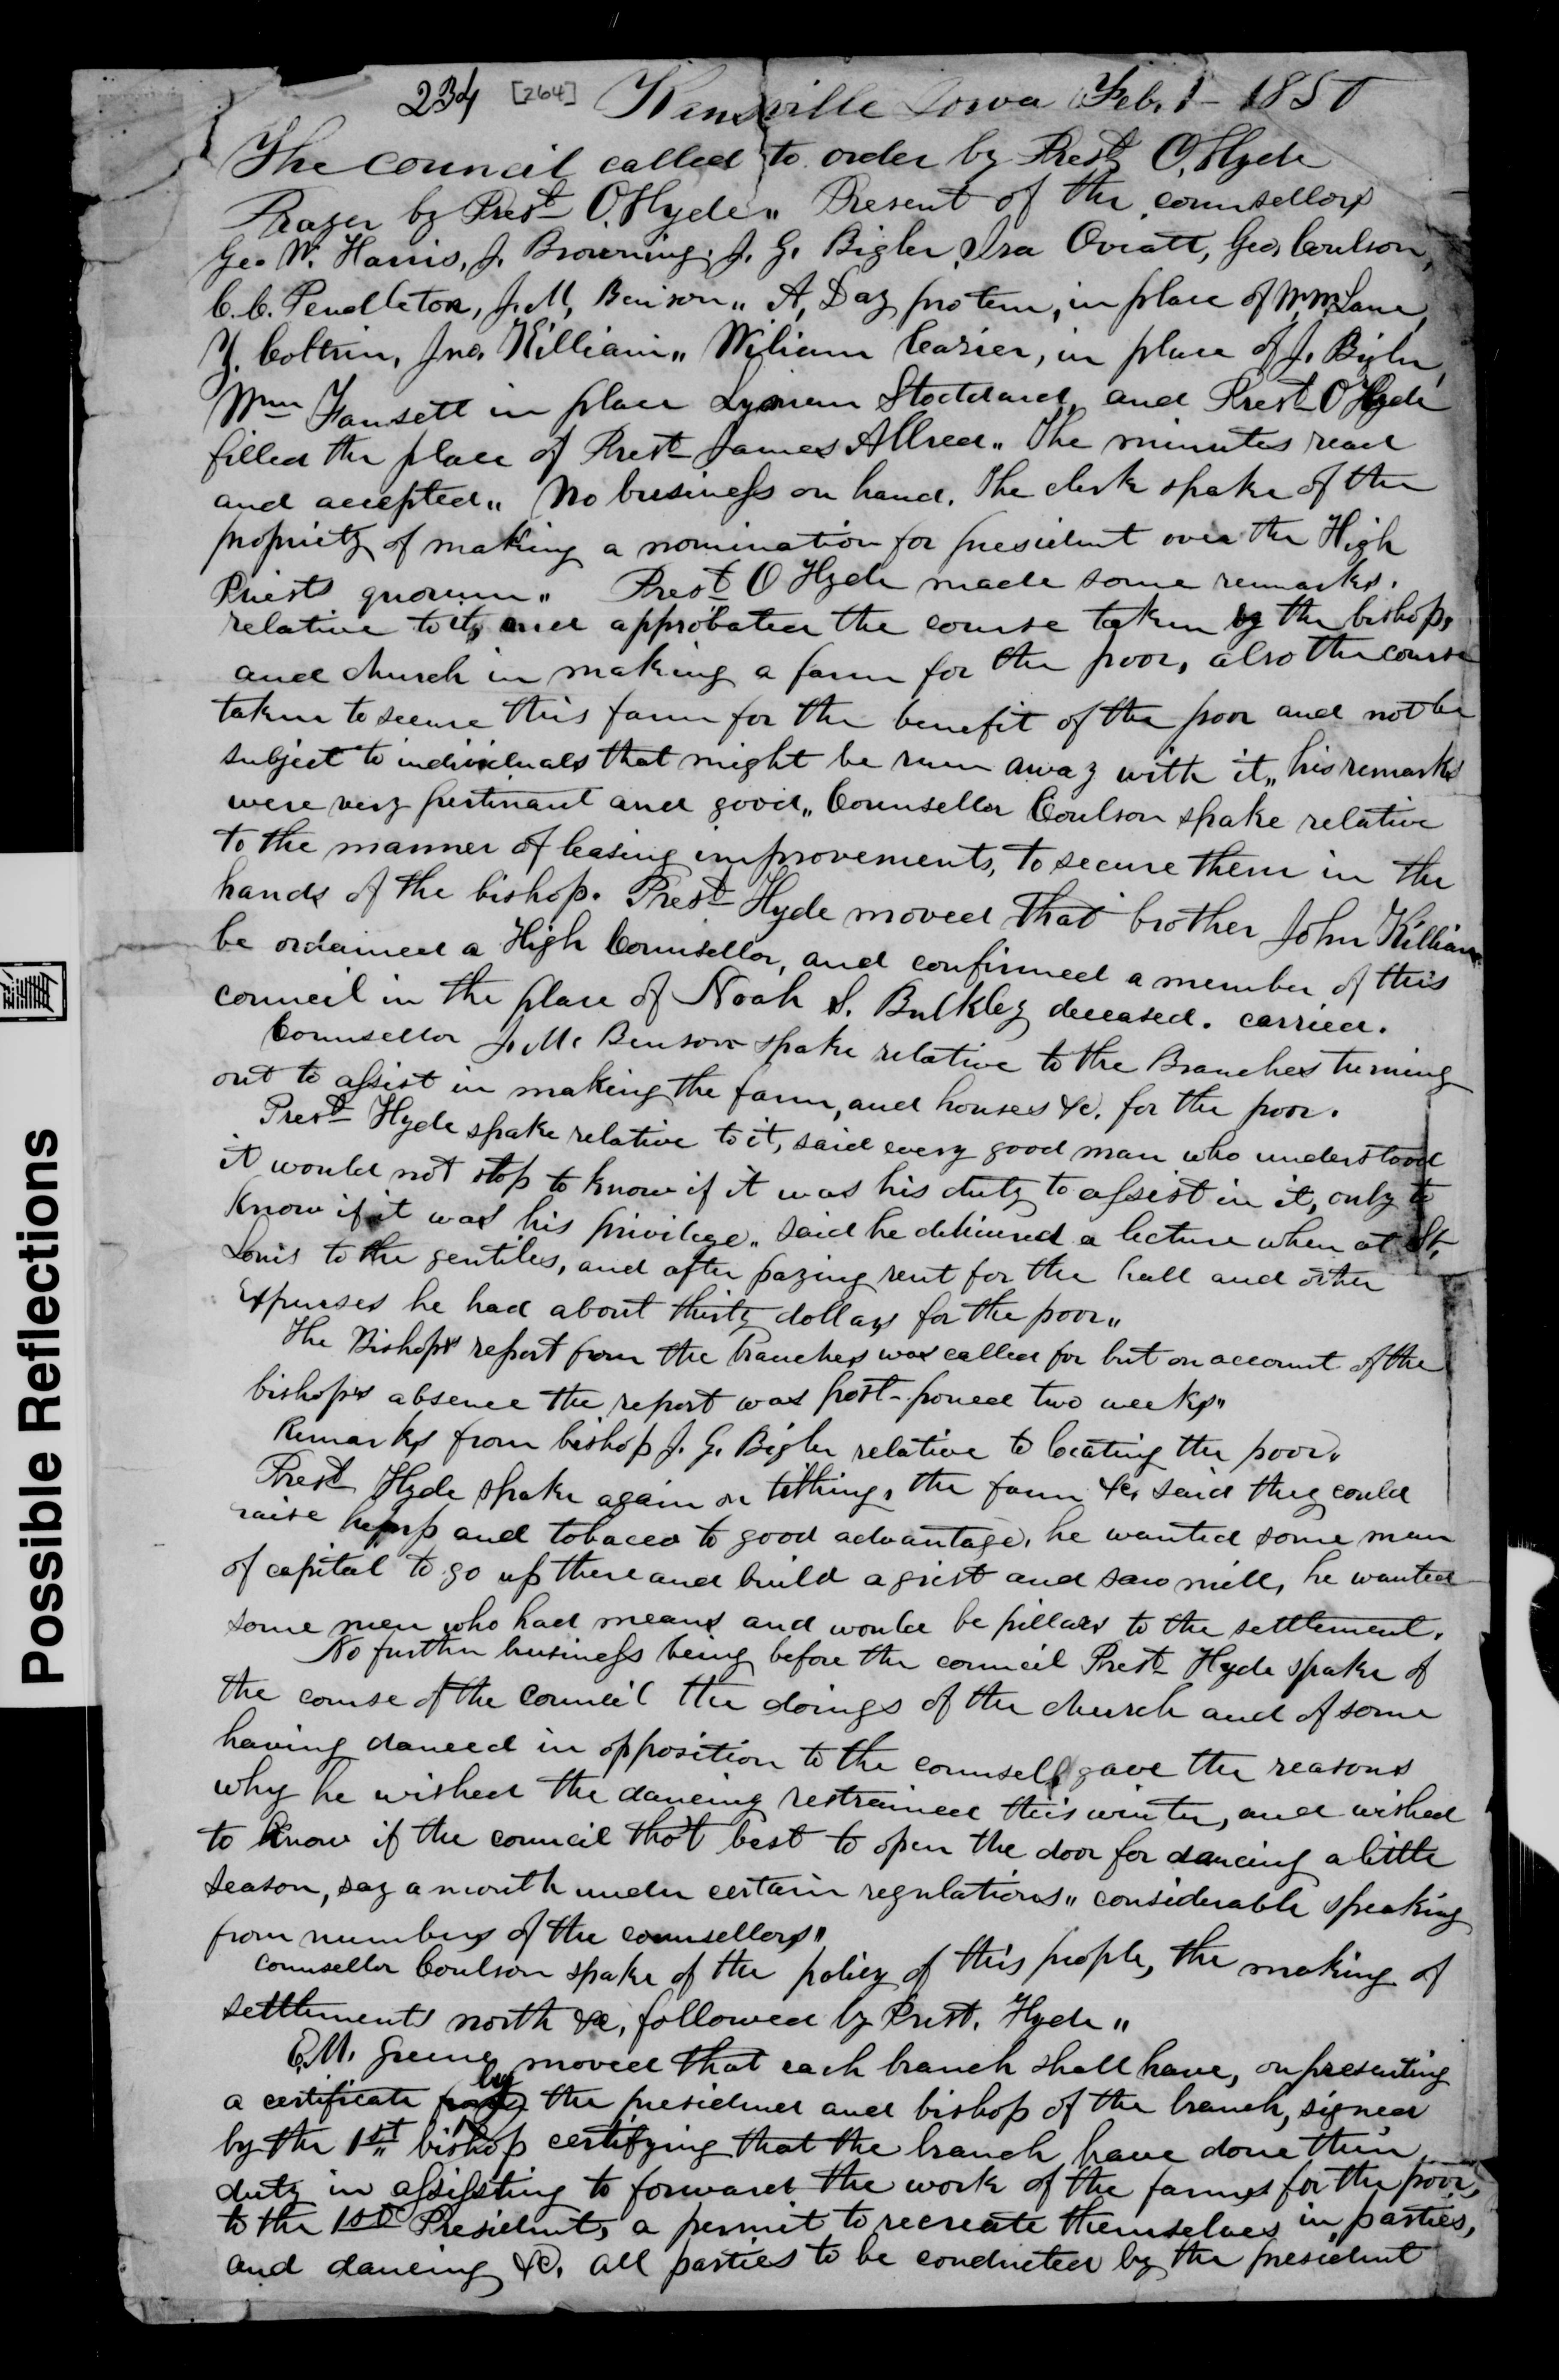 234 [264] Kanesville Iowa Feb. 1 - 1850
The council called to order by Prest O, Hyde
Prayer by Prest O. Hyde" Present of the counsellors
Geo W. Harris, J. Browning, J. G. Bigler, Ira Oviatt, Geo, Coulson,
C. C. Pendleton, J. M, Benson" A, Day protem, in place of Wm Lane,
Z. Coltrin, Jno. Killian" Wiliam Casier, in place of J. Bigler,
Wm Fawsett in place Lyman Stoddard, and Prest O Hyde
filled the place of Prest James Allred" The minutes read
and accepted" No business on hand. The clerk spake of the
propriety of making a nomination for president over the High
Priests quorum" Prest O Hyde made some remarks.
relative to it, and approbated the course taken by the bishops,
and church in making a farm for the poor, also the course
taken to secure this farm for the benefit of the poor and not be
subject to individuals that might be runn away with it" his remarks
were very pertinant and good" Counsellor Coulson spake relative
to the manner of leasing improvements, to secure them in the
hands of the bishop. Prest Hyde moved that brother John Killian
be ordained a High Counsellor, and confirmed a member of this
council in the place of Noah S. Bulkley deceased. carried.
Counsellor J. M. Benson spake relative to the Branches turning
out to assist in making the farm, and houses &c. for the poor.
Prest Hyde spake relative to it, said every good man who understood
it would not stop to know if it was his duty to assist in it, only to
know if it was his privilege" said he delivered a lecture when at St,
Louis to the gentiles, and after paying rent for the hall and other
Expenses he had about thirty dollars for the poor"
The Bishops report from the branches was called for but on account of the
bishops absence the report was post-poned two weeks"
Remarks from bishop J. G. Bigler relative to locating the poor"
Prest Hyde spake again on tithing, the farm &c, said they could
raise hemp and tobacco to good advantage, he wanted some man
of capital to go up there and build a grist and saw mill, he wanted
some men who had means and would be pillars to the settlement.
No further business being before the council Prest Hyde spake of
the course of the council the doings of the church and of some
having danced in opposition to the counsel, gave the reasons
why he wished the dancing restrained this winter, and wished
to know if the council thot best to open the door for dancing a little
season, say a month under certain regulations" considerable speaking
from numbers of the counsellors"
Counsellor Coulson spake of the policy of this people, the making of
settlements north &c, followed by Prest. Hyde"
E. M. Greene moved that each branch shall have, on presenting
a certificate by the president and bishop of the branch, signed
by the 1st bishop certifying that the branch have done their
duty in assissting to forward the work of the farms for the poor,
to the 1st President, a permit to recreate themselves in parties,
and dancing &c. all parties to be conducted by the president
Possible Reflections